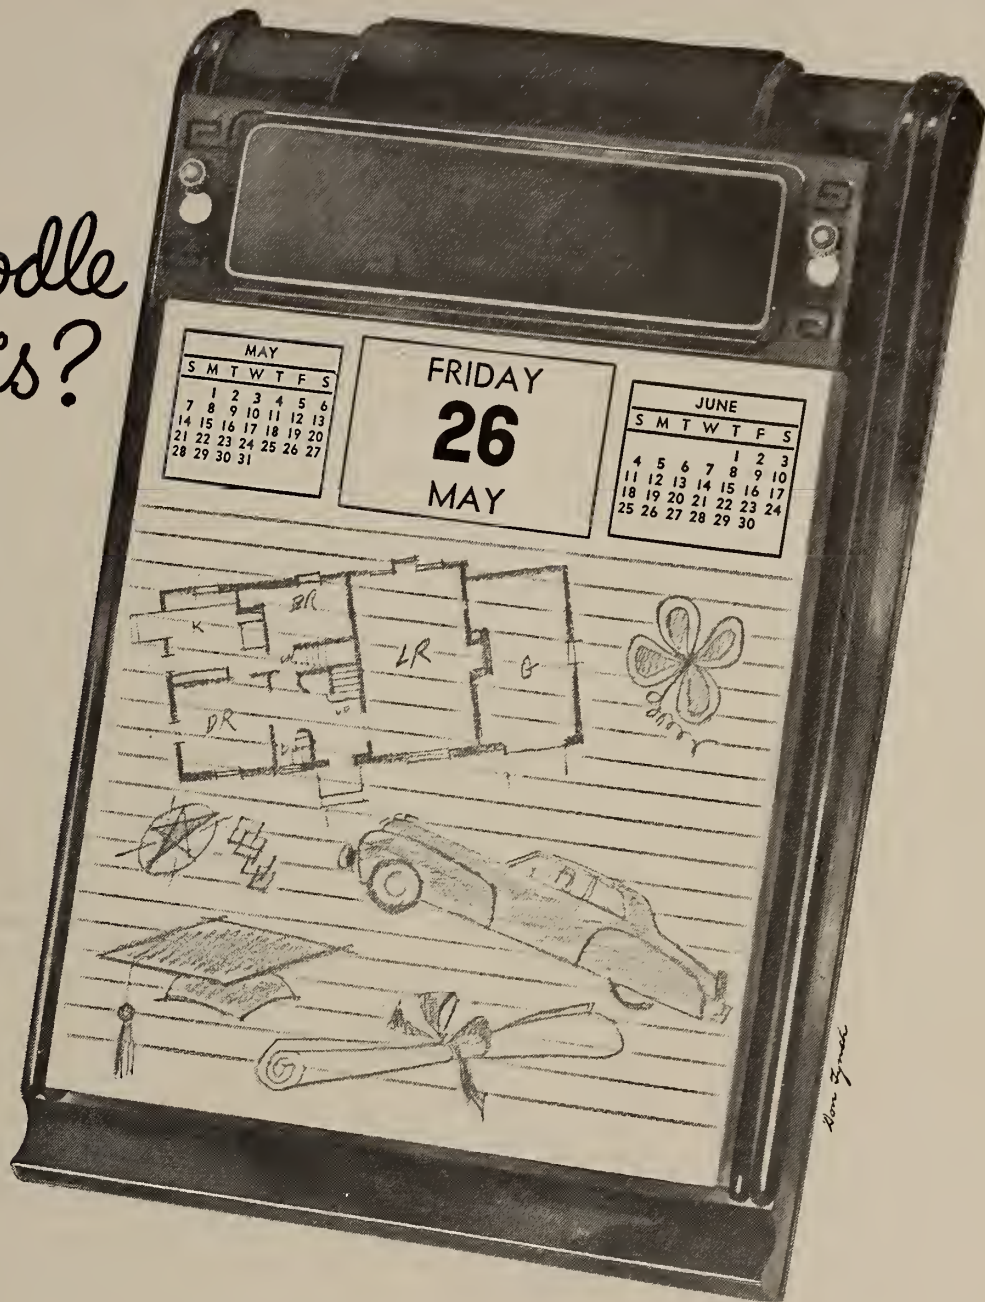 odle
s?
MAY
S M T W T F S
1 2 3 4 5 6
7 8 9 10 11 12 13
14 15 16 17 18 19 20
21 22 23 24 25 26 27
28 29 30 31
FRIDAY
26
MAY
JUNE
S M T W T F S
1 2 3
4 5 6 7 8 9 10
11 12 13 14 15 16 17
18 19 20 21 22 23 24
25 26 27 28 29 30
BR
K
LR
G
DR
UP
Don Lynch